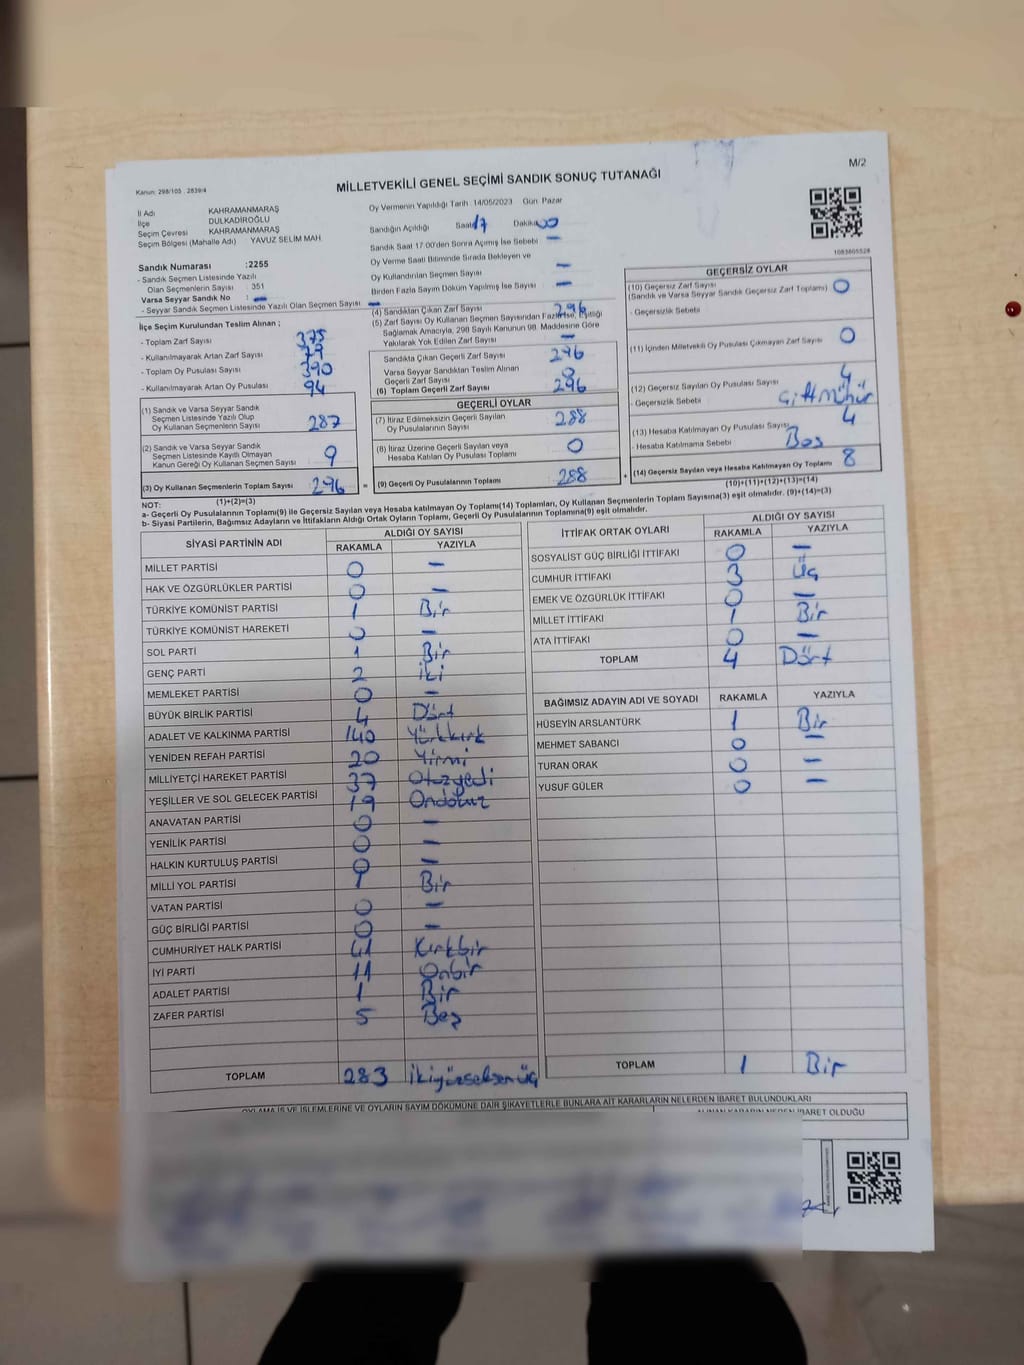 M/2
Kanun: 298/105 . 2839/4
MİLLETVEKİLİ GENEL SEÇİMİ SANDIK SONUÇ TUTANAĞI
İl Adı KAHRAMANMARAŞ
İlçe DULKADİROĞLU
Seçim Çevresi KAHRAMANMARAŞ
Seçim Bölgesi (Mahalle Adı) YAVUZ SELİM MAH.
Oy Vermenin Yapıldığı Tarih 14/05/2023 Gün Pazar
Sandığın Açıldığı Saat 17 Dakika 00
Sandık Saat 17.00'den Sonra Açımış İse Sebebi —
Oy Verme Saati Bitiminde Sırada Bekleyen ve
Oy Kullandırılan Seçmen Sayısı —
Birden Fazla Sayım Döküm Yapılmış İse Sayısı —
1083605528
Sandık Numarası :2255
- Sandık Seçmen Listesinde Yazılı
Olan Seçmenlerin Sayısı : 351
Varsa Seyyar Sandık No : —
- Seyyar Sandık Seçmen Listesinde Yazılı Olan Seçmen Sayısı —
İlçe Seçim Kurulundan Teslim Alınan ;
- Toplam Zarf Sayısı 375
- Kullanılmayarak Artan Zarf Sayısı 79
- Toplam Oy Pusulası Sayısı 390
- Kullanılmayarak Artan Oy Pusulası 94
(1) Sandık ve Varsa Seyyar Sandık
Seçmen Listesinde Yazılı Olup
Oy Kullanan Seçmenlerin Sayısı 287
(2) Sandık ve Varsa Seyyar Sandık
Seçmen Listesinde Kayıtlı Olmayan
Kanun Gereği Oy Kullanan Seçmen Sayısı 9
(3) Oy Kullanan Seçmenlerin Toplam Sayısı 296 =
(1)+(2)=(3)
(4) Sandıktan Çıkan Zarf Sayısı 296
(5) Zarf Sayısı Oy Kullanan Seçmen Sayısından Fazla İse, Eşitliği
Sağlamak Amacıyla, 298 Sayılı Kanunun 98. Maddesine Göre
Yakılarak Yok Edilen Zarf Sayısı —
Sandıkta Çıkan Geçerli Zarf Sayısı 296
Varsa Seyyar Sandıktan Teslim Alınan
Geçerli Zarf Sayısı 0
(6) Toplam Geçerli Zarf Sayısı 296
GEÇERLİ OYLAR
(7) İtiraz Edilmeksizin Geçerli Sayılan
Oy Pusulasının Sayısı 288
(8) İtiraz Üzerine Geçerli Sayılan veya
Hesaba Katılan Oy Pusulası Toplamı 0
(9) Geçerli Oy Pusulalarının Toplamı 288 +
GEÇERSİZ OYLAR
(10) Geçersiz Zarf Sayısı
(Sandık ve Varsa Seyyar Sandık Geçersiz Zarf Toplamı) 0
- Geçersizlik Sebebi
(11) İçinden Milletvekili Oy Pusulası Çıkmayan Zarf Sayısı 0
(12) Geçersiz Sayılan Oy Pusulası Sayısı 4
- Geçersizlik Sebebi Çift mühür
(13) Hesaba Katılmayan Oy Pusulası Sayısı 4
- Hesaba Katılmama Sebebi Boş
(14) Geçersiz Sayılan veya Hesaba Katılmayan Oy Toplamı 8
(10)+(11)+(12)+(13)=(14)
NOT:
a- Geçerli Oy Pusulalarının Toplamı(9) ile Geçersiz Sayılan veya Hesaba katılmayan Oy Toplamı(14) Toplamları, Oy Kullanan Seçmenlerin Toplam Sayısına(3) eşit olmalıdır. (9)+(14)=(3)
b- Siyasi Partilerin, Bağımsız Adayların ve İttifakların Aldığı Ortak Oyların Toplamı, Geçerli Oy Pusulalarının Toplamına(9) eşit olmalıdır.
SİYASİ PARTİNİN ADI ALDIĞI OY SAYISI
RAKAMLA YAZIYLA
MİLLET PARTİSİ 0 —
HAK VE ÖZGÜRLÜKLER PARTİSİ 0 —
TÜRKİYE KOMÜNİST PARTİSİ 1 Bir
TÜRKİYE KOMÜNİST HAREKETİ 0 —
SOL PARTİ 1 Bir
GENÇ PARTİ 2 İki
MEMLEKET PARTİSİ 0 —
BÜYÜK BİRLİK PARTİSİ 4 Dört
ADALET VE KALKINMA PARTİSİ 140 Yüzkırk
YENİDEN REFAH PARTİSİ 20 Yirmi
MİLLİYETÇİ HAREKET PARTİSİ 37 Otuzyedi
YEŞİLLER VE SOL GELECEK PARTİSİ 19 Ondokuz
ANAVATAN PARTİSİ 0 —
YENİLİK PARTİSİ 0 —
HALKIN KURTULUŞ PARTİSİ 0 —
MİLLİ YOL PARTİSİ 1 Bir
VATAN PARTİSİ 0 —
GÜÇ BİRLİĞİ PARTİSİ 0 —
CUMHURİYET HALK PARTİSİ 41 Kırkbir
İYİ PARTİ 11 Onbir
ADALET PARTİSİ 1 Bir
ZAFER PARTİSİ 5 Beş
TOPLAM 283 İkiyüzseksenüç
İTTİFAK ORTAK OYLARI ALDIĞI OY SAYISI
RAKAMLA YAZIYLA
SOSYALİST GÜÇ BİRLİĞİ İTTİFAKI 0 —
CUMHUR İTTİFAKI 3 Üç
EMEK VE ÖZGÜRLÜK İTTİFAKI 0 —
MİLLET İTTİFAKI 1 Bir
ATA İTTİFAKI 0 —
TOPLAM 4 Dört
BAĞIMSIZ ADAYIN ADI VE SOYADI RAKAMLA YAZIYLA
HÜSEYİN ARSLANTÜRK 1 Bir
MEHMET SABANCI 0 —
TURAN ORAK 0 —
YUSUF GÜLER 0 —
TOPLAM 1 Bir
OYLAMA İŞ VE İŞLEMLERİNE VE OYLARIN SAYIM DÖKÜMÜNE DAİR ŞİKAYETLERLE BUNLARA AİT KARARLARIN NELERDEN İBARET BULUNDUKLARI
ALINAN KARARIN NEDEN İBARET OLDUĞU